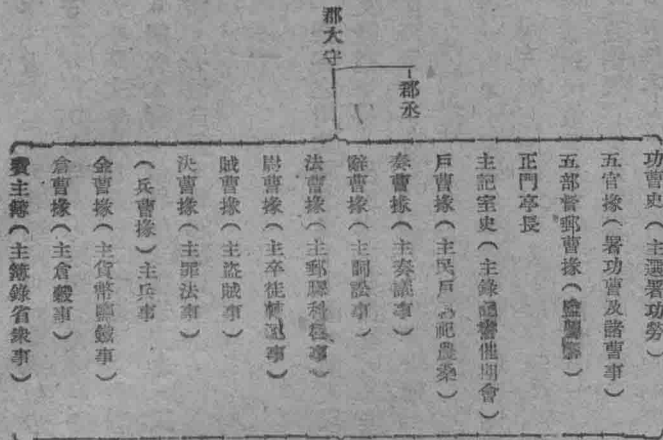 郡大守
郡丞
功曹史（主選署功勞）
五官掾（署功曹及諸曹事）
五部督郵曹掾（監屬縣）
正門亭長
主記室史（主錄記書催期會）
戶曹掾（主民戶祠祀農桑）
奏曹掾（主奏議事）
辭曹掾（主詞訟事）
法曹掾（主郵驛科程事）
尉曹掾（主卒徒轉運事）
賊曹掾（主盜賊事）
決曹掾（主罪法事）
（兵曹掾）主兵事
金曹掾（主貨幣鹽鐵事）
倉曹掾（主倉穀事）
主簿（主簿錄省衆事）